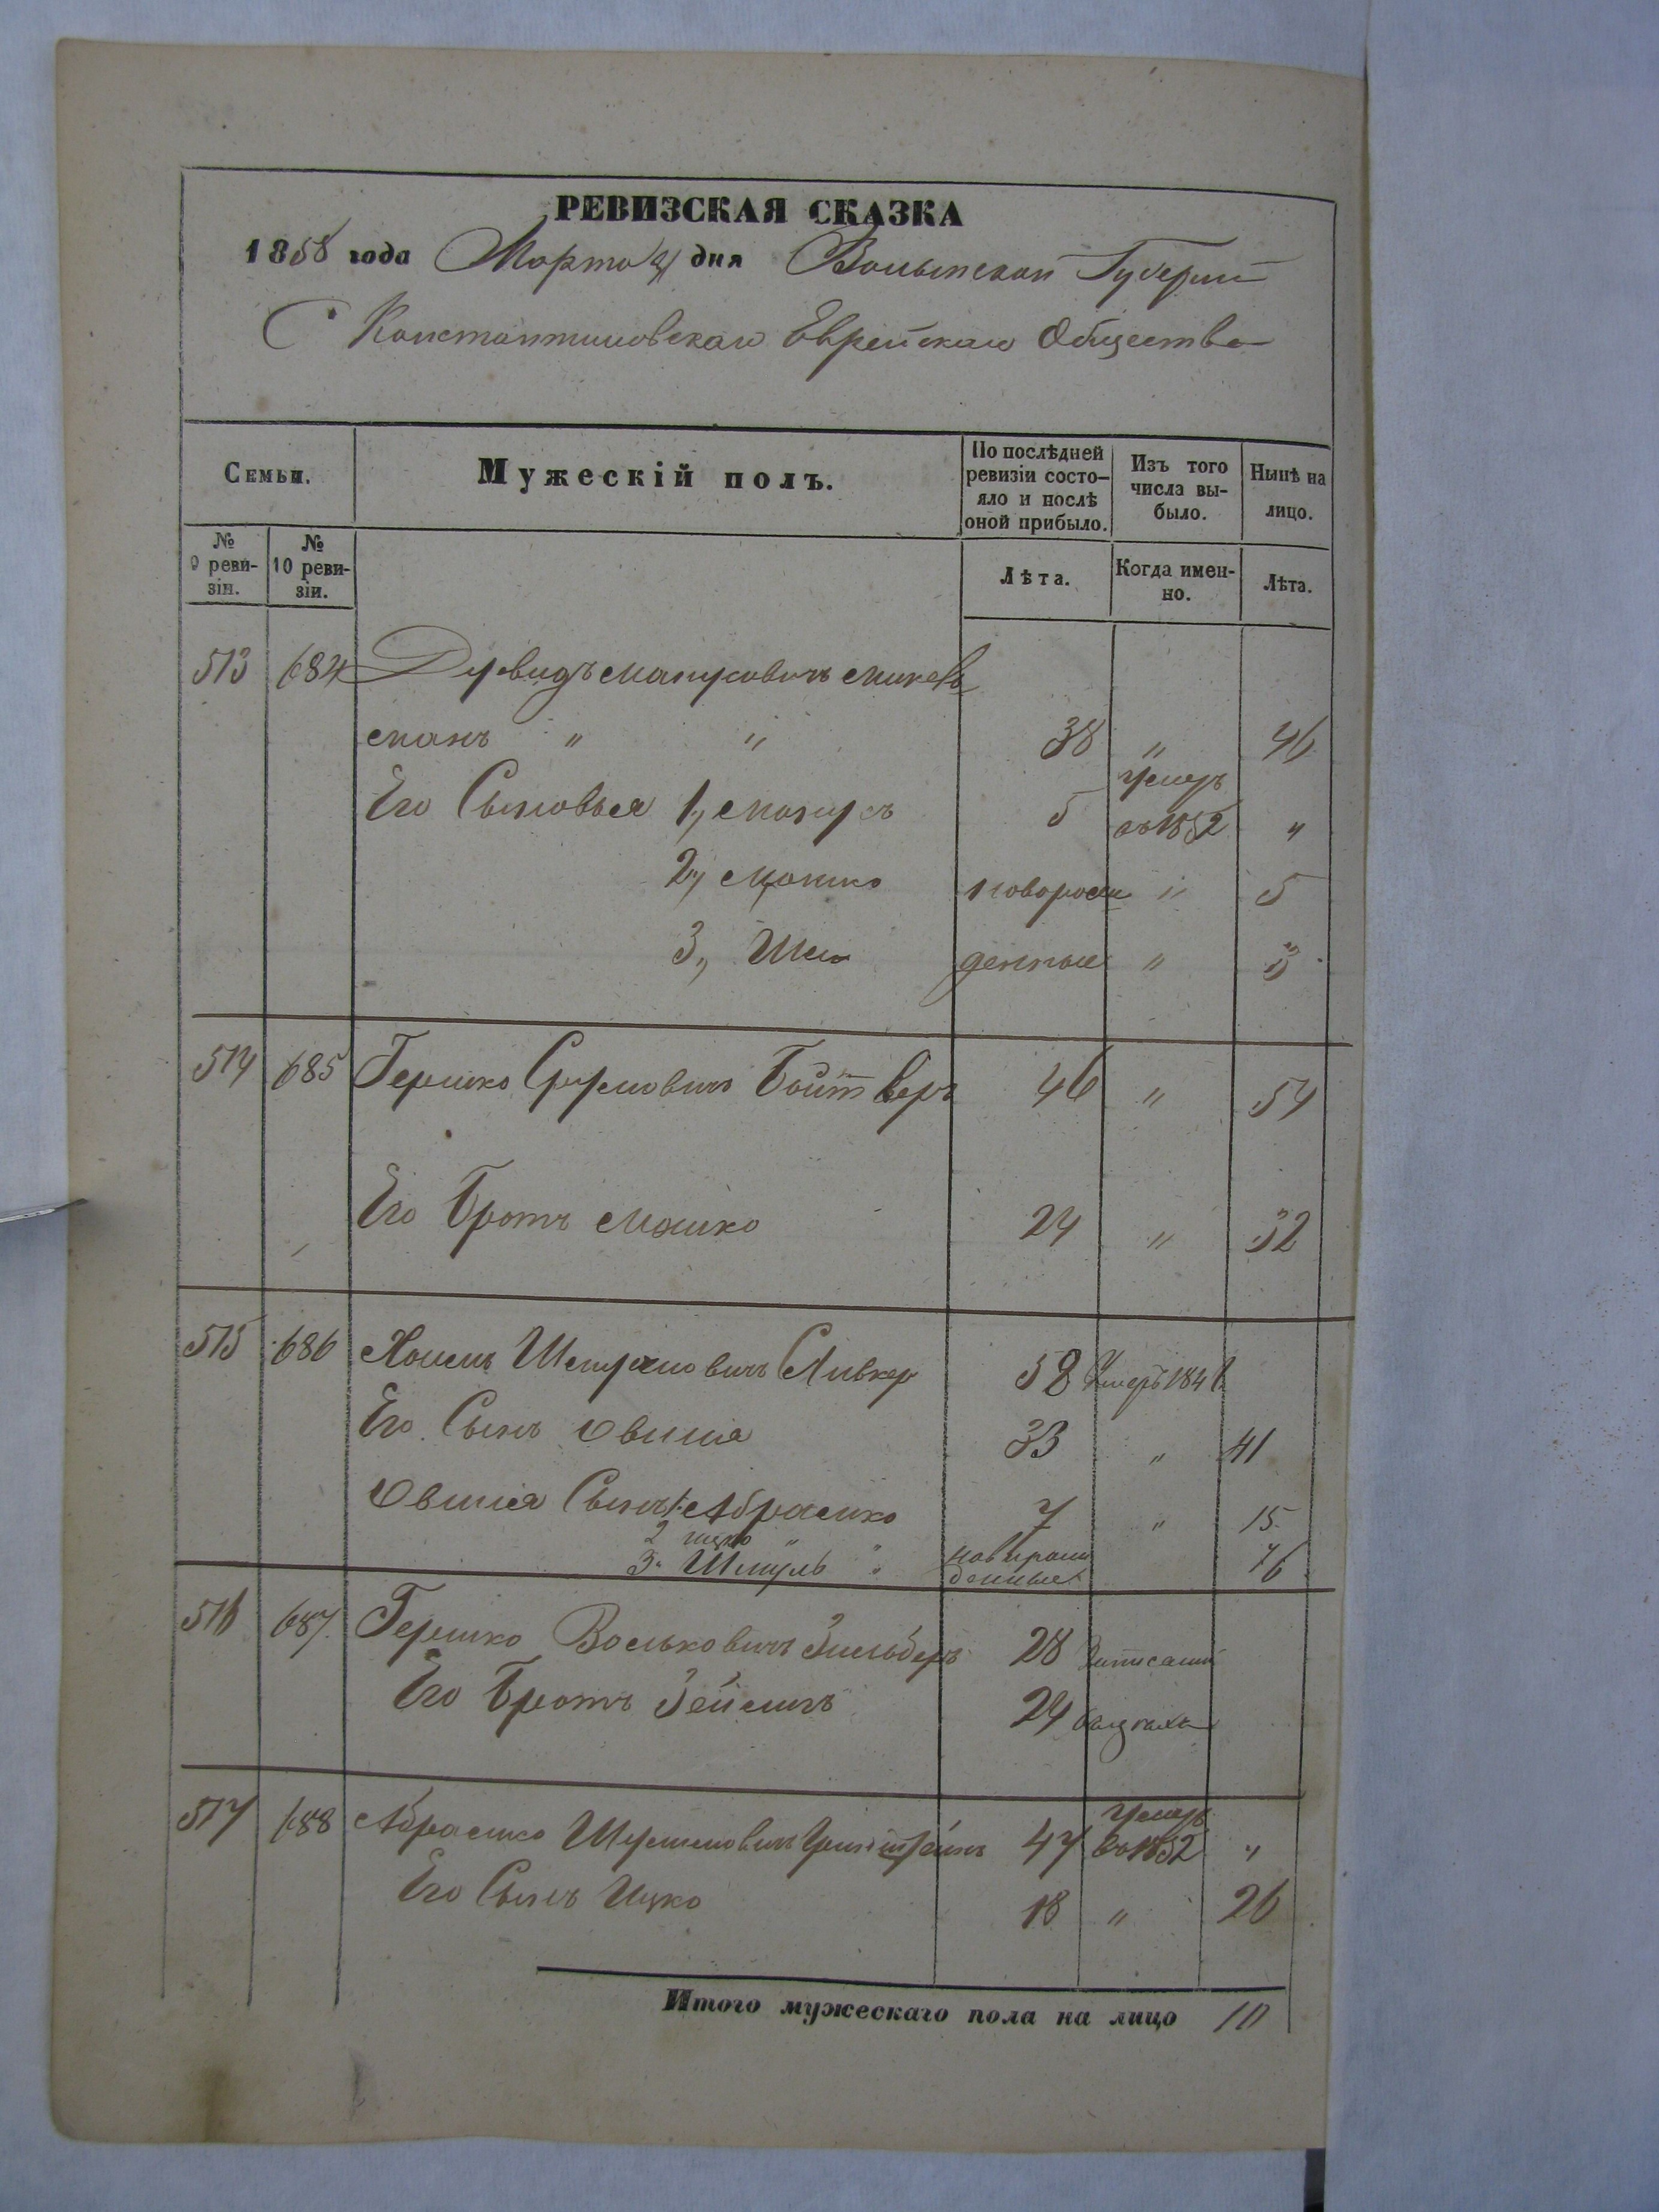 РЕВИЗСКАЯ СКАЗКА
1858 года Марта дня Волынской Губерніи
С Константиновскаго Еврейскаго Общества
Семьи.
Мужескій полъ.
По послѣдней ревизіи состо-
яло и послѣ
оной прибыло.
Изъ того
числа вы-
было.
Нынѣ на
лицо.
№
9 реви-
зіи.
№
10 реви-
зіи.
Лѣта.
Когда имен-
но.
Лѣта.
513 684 Дувидъ Манусовичъ
манъ " " 38 " 46
Его Сыновья 1, Манусъ 5 умеръ въ 1852 "
2, Мошко новорож " 5
3, денные " 3
514 685 Гершко Сруловичъ 46 " 54
Его Братъ Мошко 24 " 32
515 686 Хаимъ Ливкер 58 Умеръ
Его Сынъ Овшія 33 " 41
Овшія Сынъ 1. Абрамко 7 " 15
2 Ицко "
3. Шмуль " новорож
денные 7 6
516 687 Гершко Вольковичъ Зильберъ 28
Его Братъ Зейликъ 24
517 688 Абрамко 47 умеръ въ 1852 "
Его Сынъ Ицко 18 " 26
Итого мужескаго пола на лицо 10